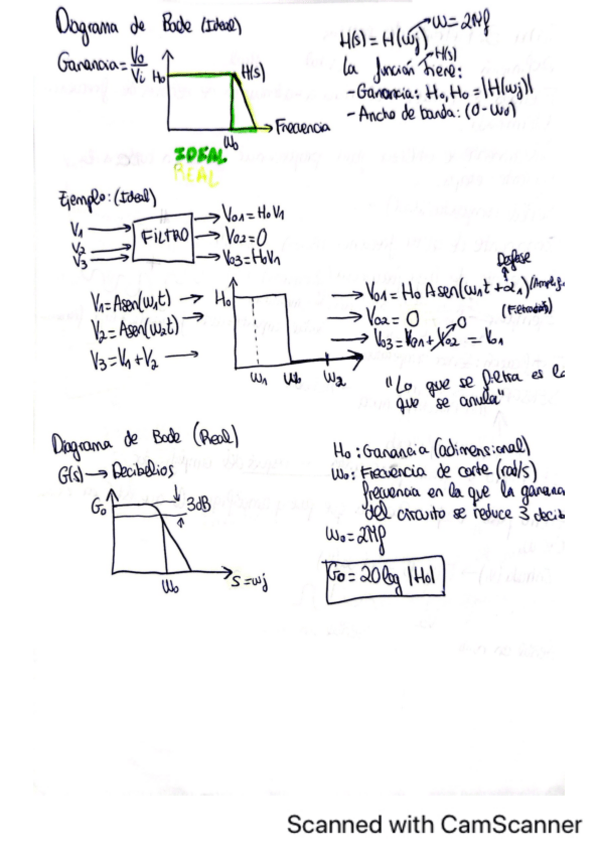 Diagrama de Bode (Ideal)
Ganancia = Vo/Vi
Ho
H(s)
Frecuencia
ωo
IDEAL
REAL
H(s) = H(ωj) → ω = 2πf
La función H(s) tiene:
- Ganancia: Ho, Ho = |H(ωj)|
- Ancho de banda: (0 - ωo)
Ejemplo: (Ideal)
V1
V2
V3
FILTRO
Vo1 = HoV1
Vo2 = 0
Vo3 = HoV1
V1 = Asen(ω1t)
V2 = Asen(ω2t)
V3 = V1 + V2
Ho
ω1 ωo ω2
Desfase
Vo1 = Ho A sen(ω1t + α1)
(Filtrados)
Vo2 = 0
Vo3 = Vo1 + Vo2 = Vo1
0
"Lo que se filtra es lo
que se anula"
Diagrama de Bode (Real)
G(s) → Decibelios
Go
3dB
ωo
S = ωj
Ho: Ganancia (adimensional)
ωo: Frecuencia de corte (rad/s)
frecuencia en la que la ganan
del circuito se reduce 3 decib
ωo = 2πf
Go = 20 log |Ho|
Scanned with CamScanner